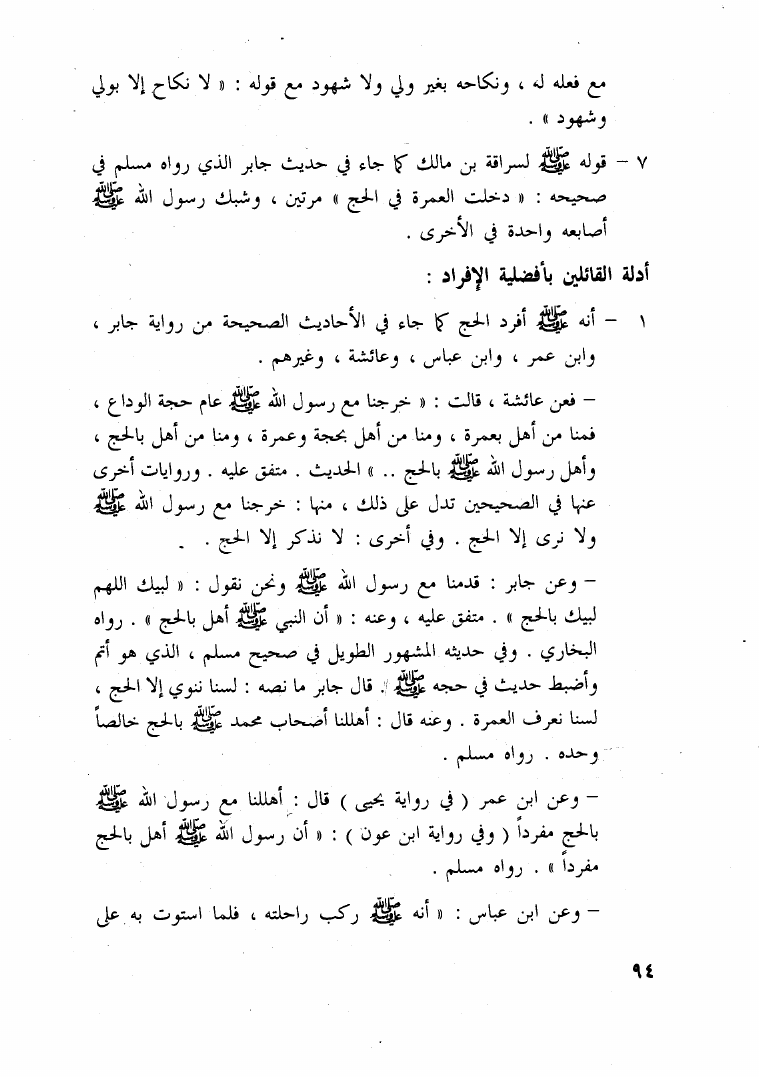 مع فعله له ، ونكاحه بغير ولي ولا شهود مع قوله : « لا نكاح إلا بولي
وشهود » .
٧ – قوله ﷺ لسراقة بن مالك كما جاء في حديث جابر الذي رواه مسلم في
صحيحه : « دخلت العمرة في الحج » مرتين ، وشبك رسول الله ﷺ
أصابعه واحدة في الأخرى .
أدلة القائلين بأفضلية الإفراد :
١ – أنه ﷺ أفرد الحج كما جاء في الأحاديث الصحيحة من رواية جابر ،
وابن عمر ، وابن عباس ، وعائشة ، وغيرهم .
– فعن عائشة ، قالت : « خرجنا مع رسول الله ﷺ عام حجة الوداع ،
فمنا من أهل بعمرة ، ومنا من أهل بحجة وعمرة ، ومنا من أهل بالحج ،
وأهل رسول الله ﷺ بالحج .. » الحديث . متفق عليه . وروايات أخرى
عنها في الصحيحين تدل على ذلك ، منها : خرجنا مع رسول الله ﷺ
ولا نرى إلا الحج . وفي أخرى : لا نذكر إلا الحج .
– وعن جابر : قدمنا مع رسول الله ﷺ ونحن نقول : « لبيك اللهم
لبيك بالحج » . متفق عليه ، وعنه : « أن النبي ﷺ أهل بالحج » . رواه
البخاري . وفي حديثه المشهور الطويل في صحيح مسلم ، الذي هو أتم
وأضبط حديث في حجه ﷺ . قال جابر ما نصه : لسنا ننوي إلا الحج ،
لسنا نعرف العمرة . وعنه قال : أهللنا أصحاب محمد ﷺ بالحج خالصاً
وحده . رواه مسلم .
– وعن ابن عمر ( في رواية يحيى ) قال : أهللنا مع رسول الله ﷺ
بالحج مفرداً ( وفي رواية ابن عون ) : « أن رسول الله ﷺ أهل بالحج
مفرداً » . رواه مسلم .
– وعن ابن عباس : « أنه ﷺ ركب راحلته ، فلما استوت به على
٩٤